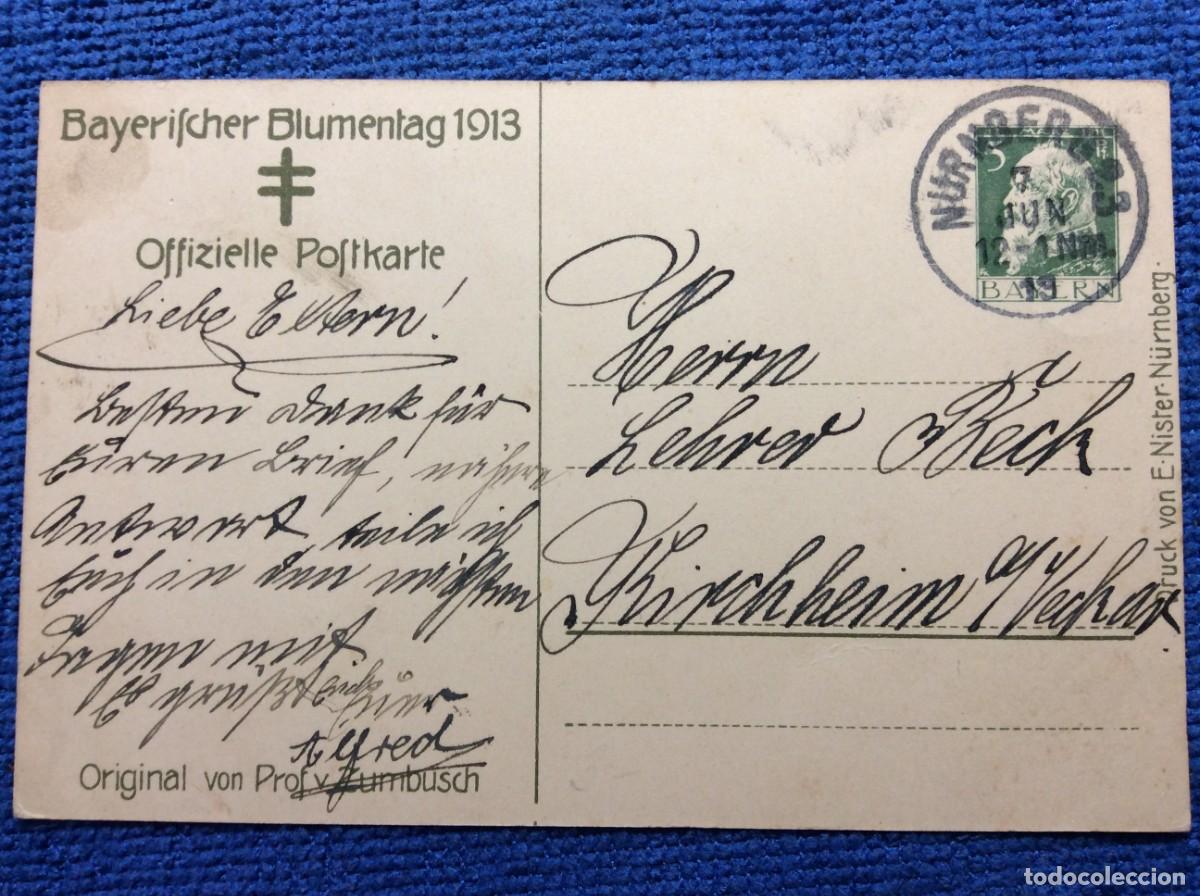 Bayerischer Blumentag 1913
Offizielle Postkarte
Liebe Eltern!
Besten Dank für
Euren Brief, nähere
Antwort teile ich
Euch in den nächsten
Tagen mit
Es grüßt Euch Euer
Alfred
Original von Prof. v. Zumbusch
NÜRNBERG 23
7
JUN
12-1 Nm.
13
5
BAYERN
Herrn
Lehrer Beck
Kirchheim a/Neckar
Druck von E. Nister-Nürnberg.
todocoleccion